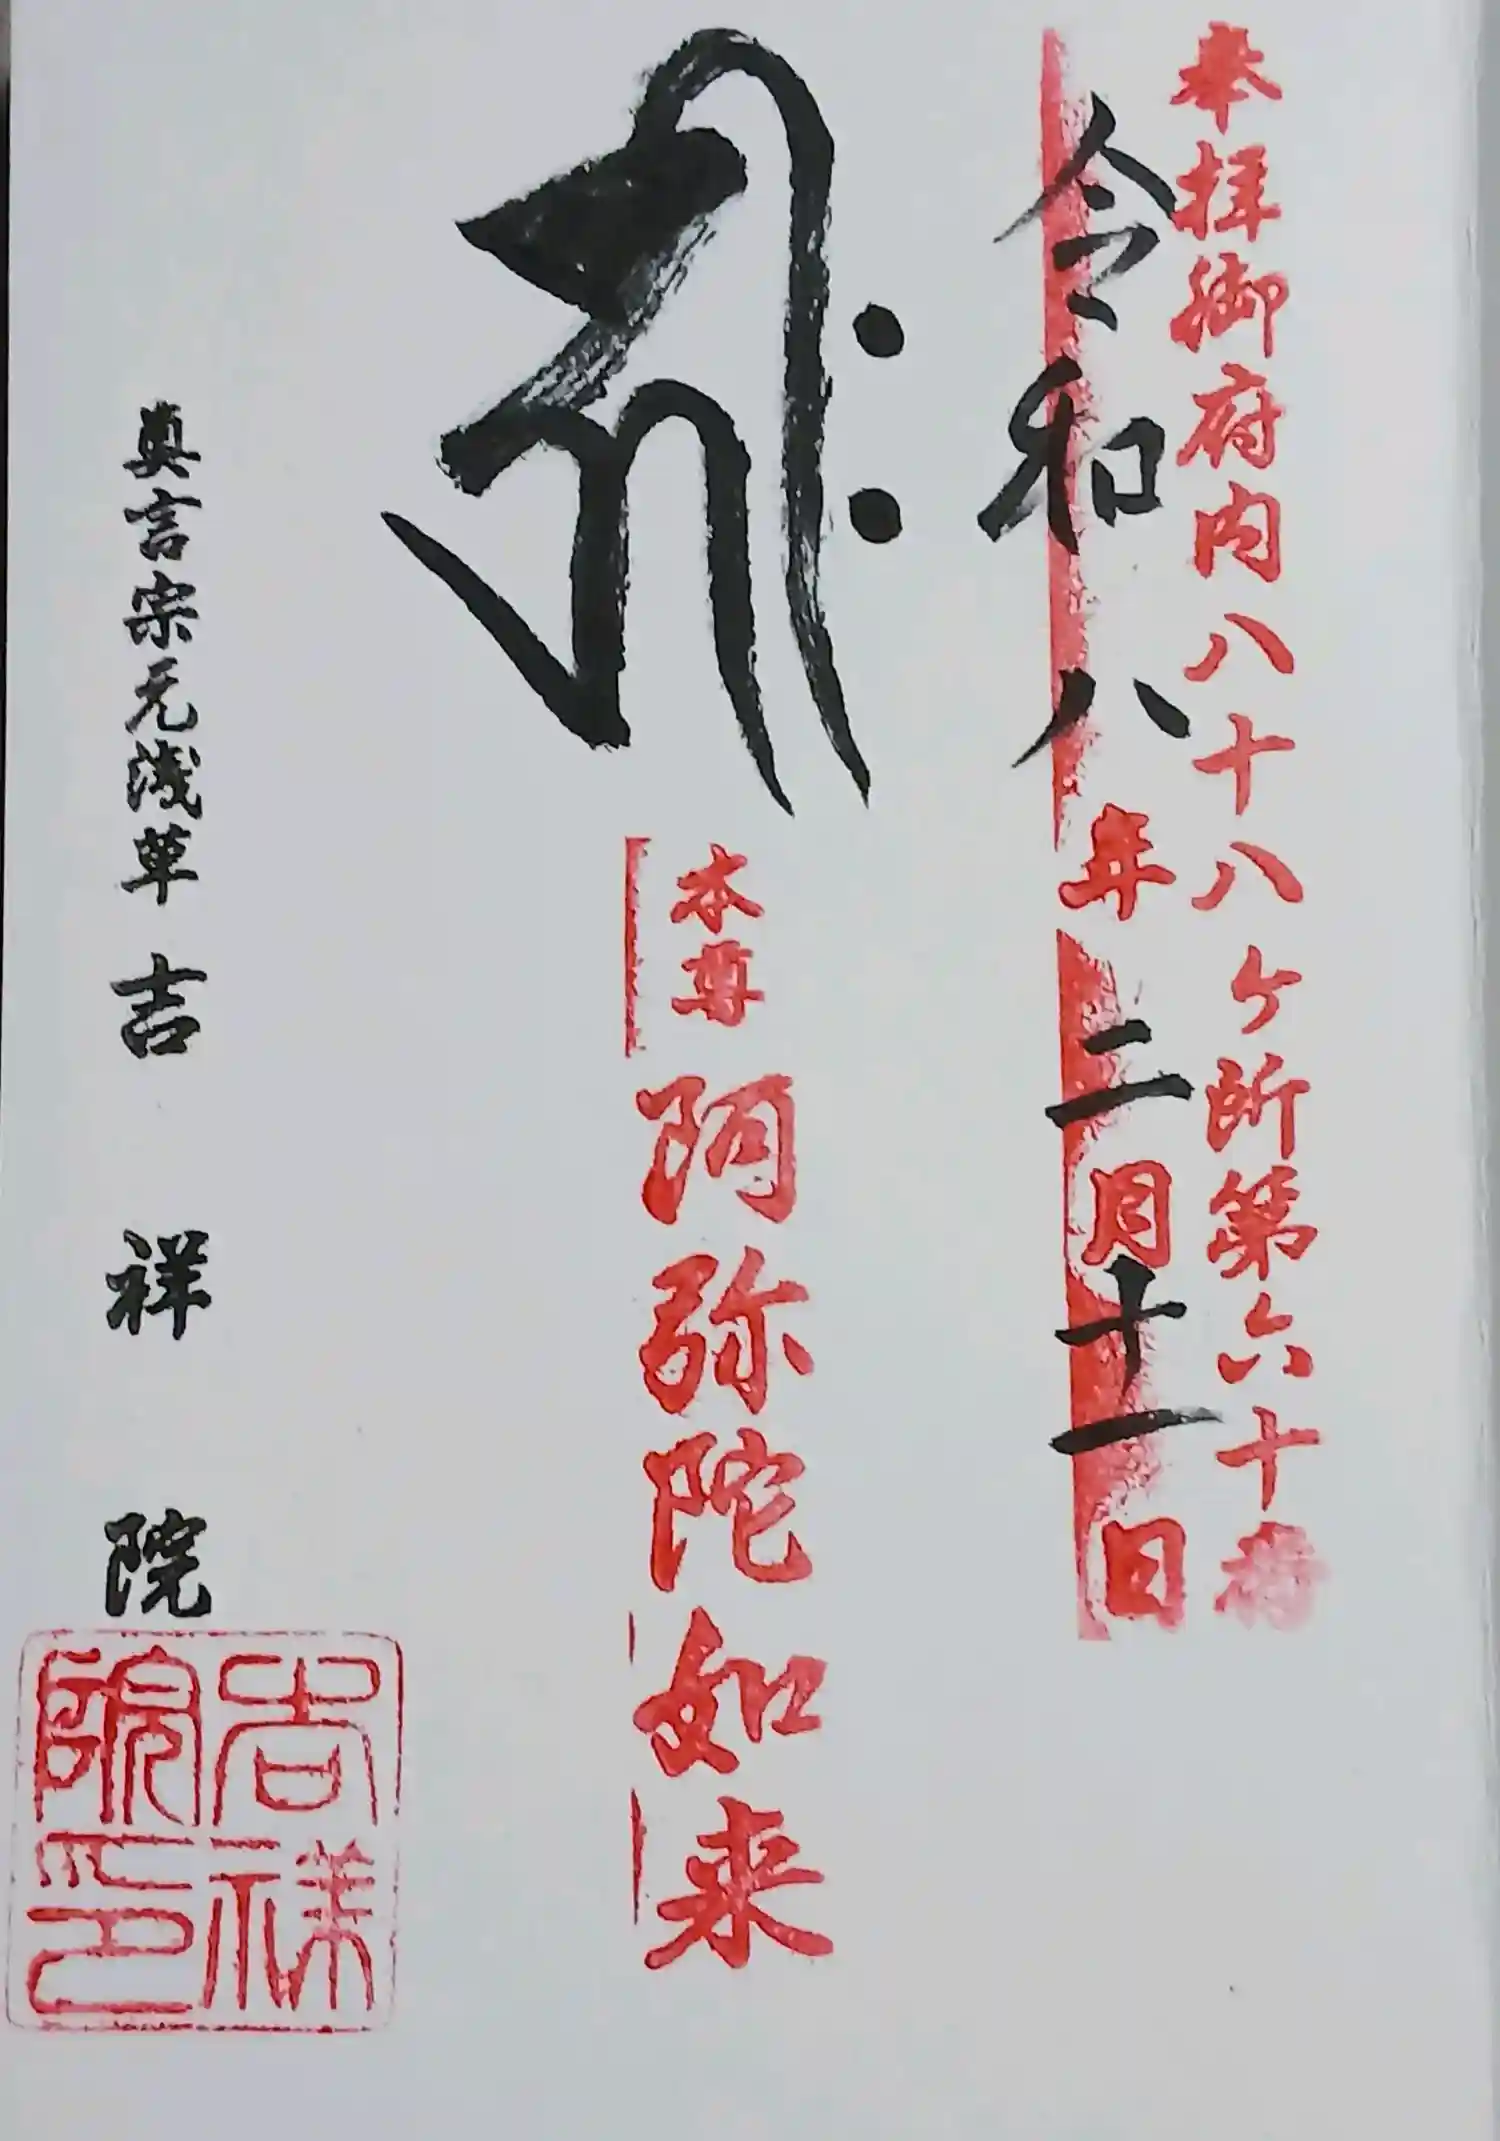 奉拝御府内八十八ヶ所第六十番
令和八年二月十一日
𑖮𑖿𑖨𑖱𑖾
本尊
阿弥陀如来
真言宗元浅草 吉祥院
吉祥院印